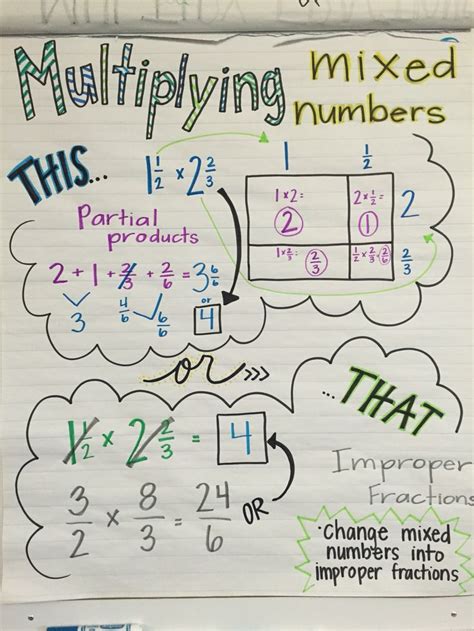 Multiplying mixed numbers
THIS...
1 1/2 × 2 2/3
1 1/2
1×2= 2
2×1/2= 1
2
1×2/3= 2/3
1/2×2/3=2/6
2/3
Partial
products
2 + 1 + 2/3 + 2/6 = 3 6/6
3 4/6 6/6 or 4
or >>>
...THAT
1 1/2 × 2 2/3 = 4
Improper
Fractions
3/2 × 8/3 = 24/6 OR
·change mixed
numbers into
improper fractions